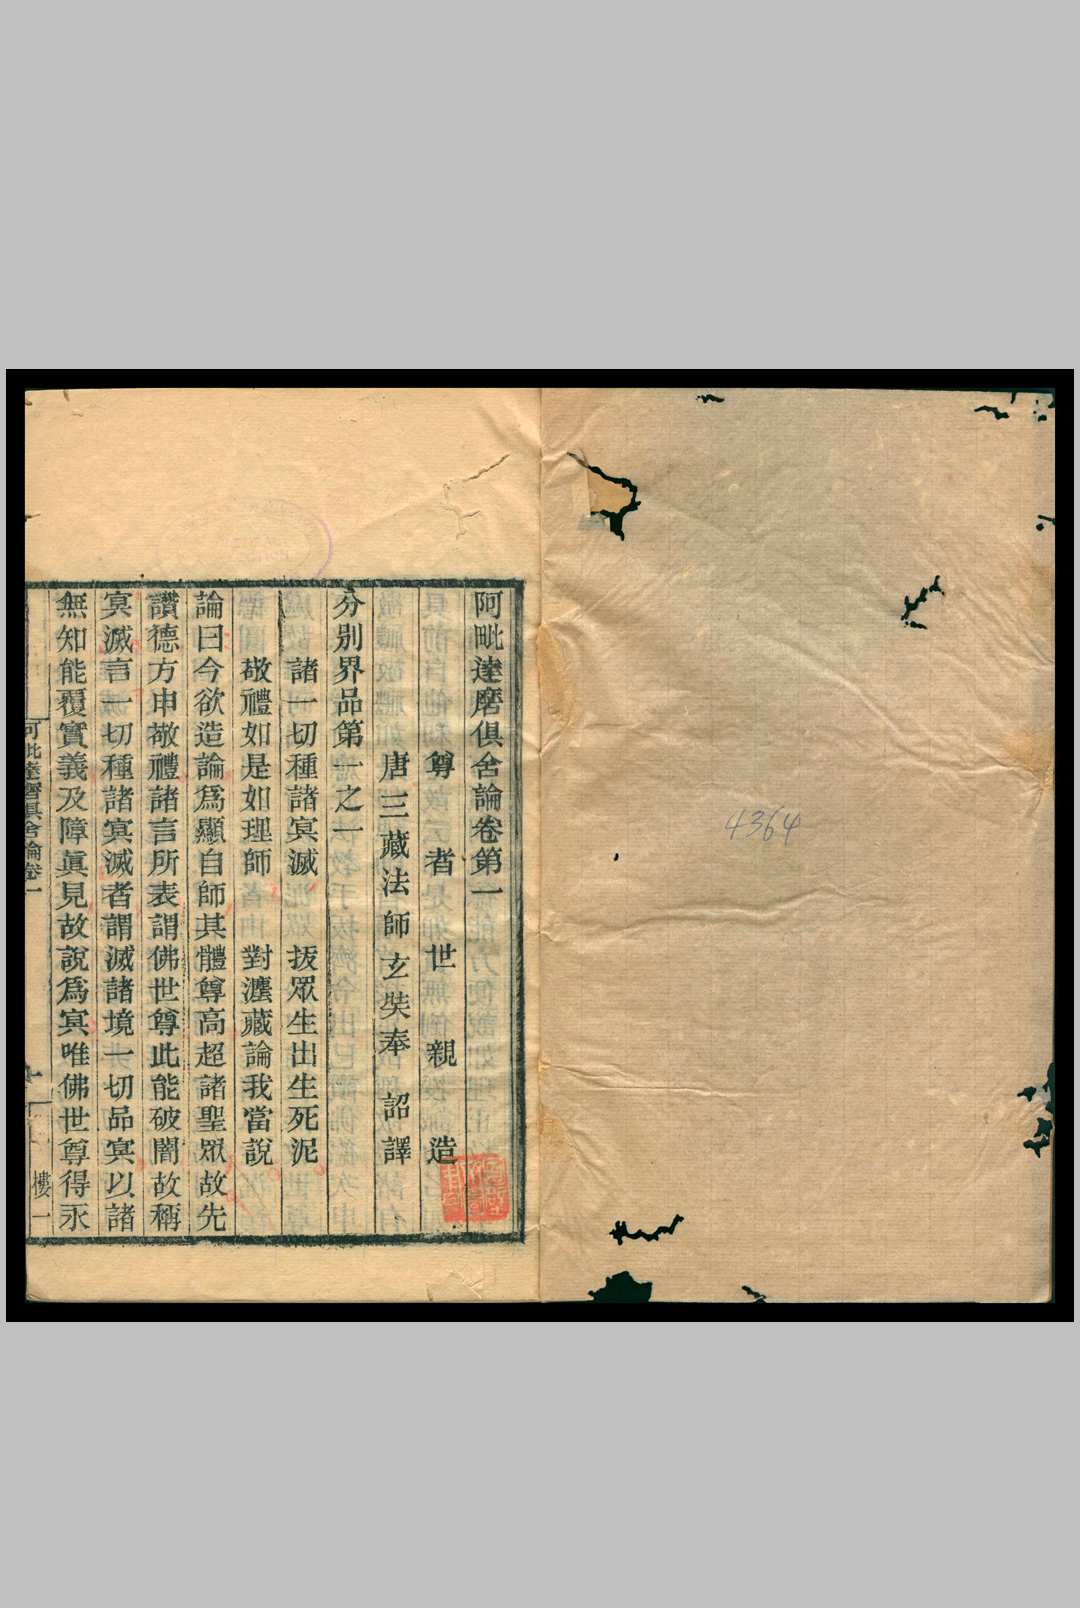 4364
阿毗達磨俱舍論卷第一
尊者世親造
唐三藏法師玄奘奉 詔譯
分別界品第一之一
諸一切種諸冥滅 拔眾生出生死泥
敬禮如是如理師 對灋藏論我當說
論曰今欲造論爲顯自師其體尊高超諸聖眾故先
讚德方申敬禮諸言所表謂佛世尊此能破闇故稱
冥滅言一切種諸冥滅者謂滅諸境一切品冥以諸
無知能覆實義及障眞見故說爲冥唯佛世尊得永
阿毗達磨俱舍論卷一
樓一